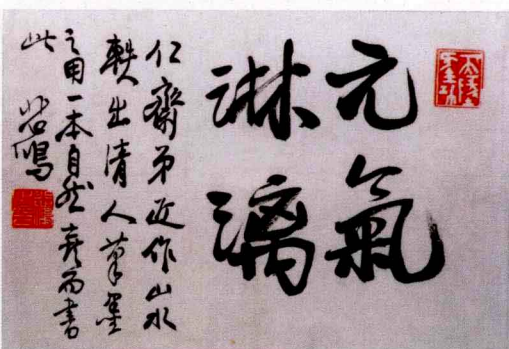 元氣
淋漓
仁齋弟近作山水
軼出清人筆墨
之用一本自然喜而書
此 悲鴻